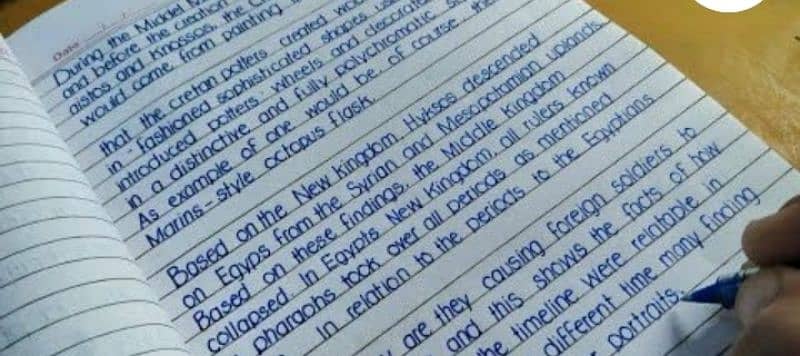 Date
During the Middel M
and before the creation
aistos and Knossos, the C
would come from painting
that the cretan potters created
in - fashioned sophishcated shapes
introduced potters' wheels and decorated
in a distinctive, and fully polychromatic
As example of one would be, of course, the
Marins - style octopus flask.
Based on the New Kingdom Hyksos descended
on Egyps from the Syrian and Mesopotamian uplands
Based on these findings, the Middle Kingdom
collapsed In Egypts New Kingdom, all rulers known
pharaohs took over all periods as mentioned
In relation to the periods to the Egyptians
are they causing foreign soldiers to
and this shows the facts of how
the timeline were relatable in
different time many finding
portraits.